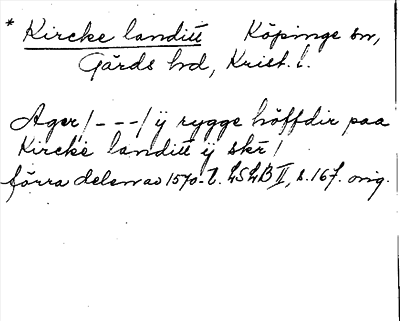 * Kircke landitt Köpinge sn,
Gärds hd, Krist. l.
Ager /---/ ÿ rygge höffdir paa
Kircke landitt ÿ skr /
förra delen av 1570-t. LSLB II, s. 167. orig.